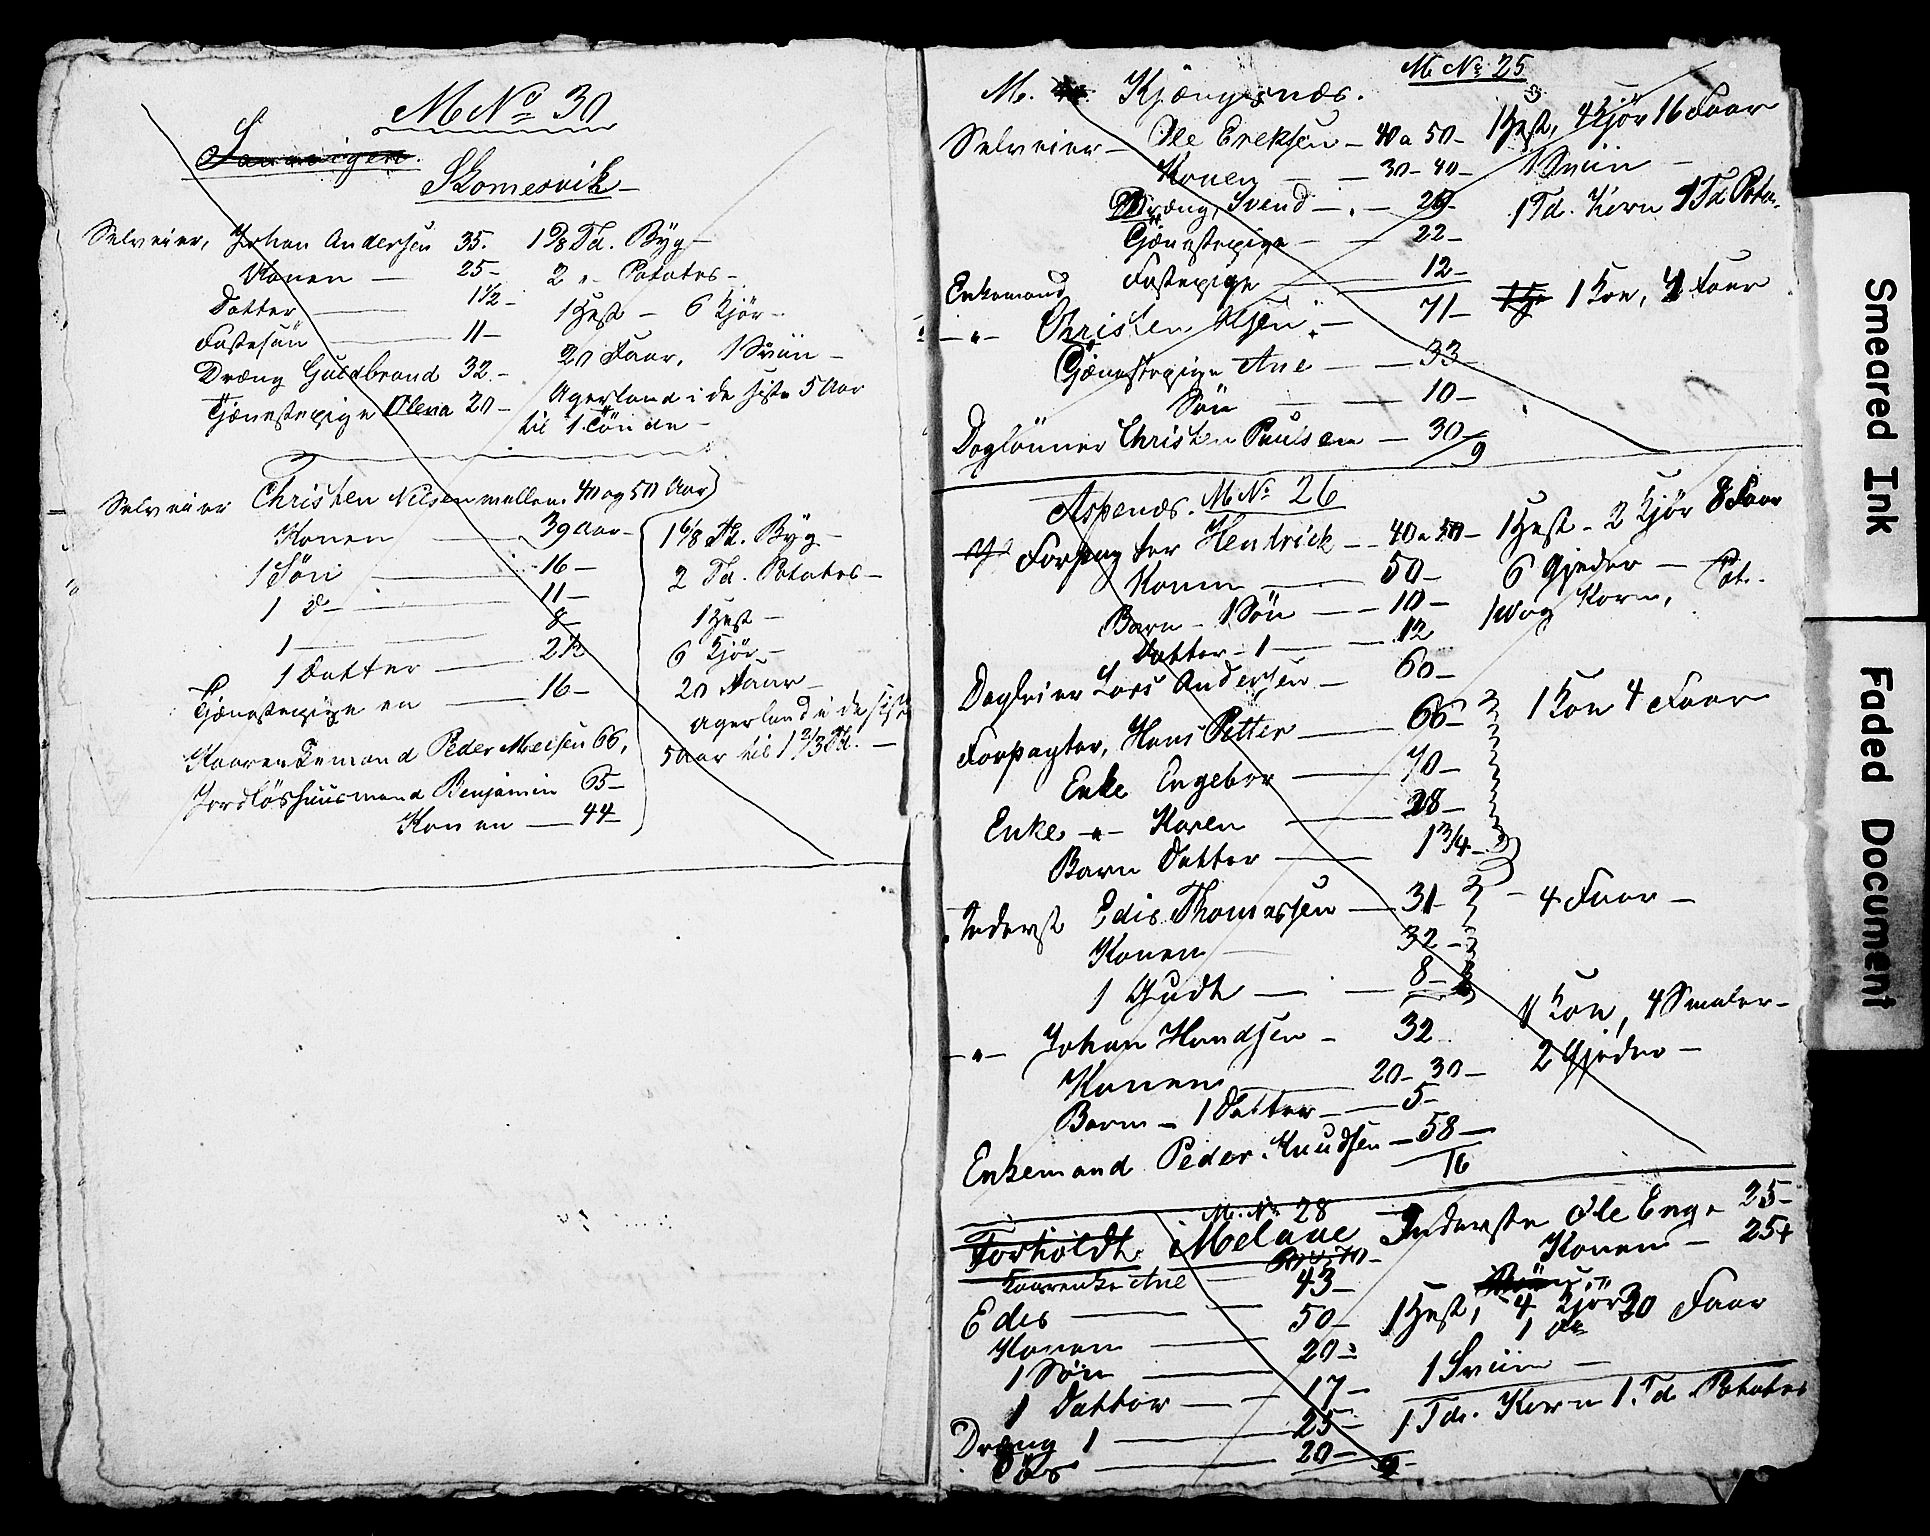 M No 30
Skomesvik
Selveier, Johan Andersen 35. 1 5/8 Td. Byg
Konen — 25 — 2 " Potates —
Datter — 1½ — 1 Hest — 6 Kjör —
Fostesön — 11 — 20 Faar, 1 Sviin —
Dræng Guldbrand 32 — Agerland i de siste 5 Aar
Tjænestepige Olena 20 — til 1 Tönde —
Selveier Christen Nilsen mellem 40 og 50 Aar
Konen — 39 Aar — 1 6/8 Td. Byg —
1 Sön — 16 — 2 Td. Potates —
1 d — 11 —
1 — 8 — 1 Hest —
1 Datter — 2½ 6 Kjör —
Tjænestepige en — 16 — 20 Faar —
Agerland i de siste
Kaarenkemand Peder 66, 5 Aar til 1 2/3 Td. —
Jordlöshuusmand Benjamin 65 —
Konen — 44 —
M No 25
M. Kjængsnæs.
Selveier — Ole Ereksen — 40 a 50 — 1 Hest, 4 Kjör 16 Faar
Konen — 30 - 40 — 1 Sviin —
Dræng, Svend — 20 — 1 Td. Korn 1 Td Pota.
Tjænestepige — 22 —
Fostepige — 12 —
Enkemand
— " — Christen — 71 — 1 Koe, 4 Faar
Tjænestepige Ane — 33
Sön — 10 —
Daglönner Christen Paulsen — 30
9
Aspenæs. M No 26
Forpagter Hendrick — 40 a 50 — 1 Hest - 2 Kjör 8 Faar
Konen — 50 — 6 Gjeder — Pot.
Barn — 1 Sön — 10 — 1 Vog Korn,
Datter — 1 — 12
Dagleier Lars Andersen — 60 —
Forpagter, Hans Petter — 66 — 1 Koe 4 Faar
Enke Engebor — 70 —
Enke — " — Karen — 28 —
Barn Datter — 1 3/4 —
Inderst Edis Thomassen — 31 — 4 Faar —
Konen — 32 —
1 Gudt — 8 —
— " — Johan Handsen — 32 1 Koe, 4 Smaler —
Konen — 20 - 30 — 2 Gjeder —
Barn — 1 Datter — 5 —
Enkemand Peder Knudsen — 58 —
16
M. No 28
Forholdt i Melane Inderste Ole Eng. 25 —
Konen — 25+
Kaarenke Ane —
Edis — 43 —
Konen — 50 — 1 Hest, 4 Kjör 20 Faar
1 Sön — 20 — 1 Sviin —
1 Datter — 17 — 1 Td. Korn 1. Td Potates
Dræng 1 — 25 —
Tös — 20 —
9
Smeared Ink
Faded Document